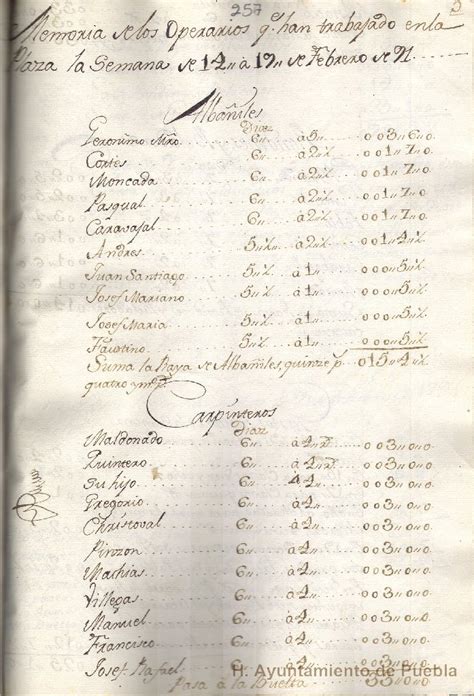 257
Memoria de los Operarios q.e han trabajado en la
Plaza la Semana de 14,, à 19,, de Febrero de 91.
Albañiles
Diaz
Geronimo Mro. 6,, à 5,, 0 0 3,, 6,, 0.
Cortés 6,, à 2,,½ 0 0 1,, 7,, 0.
Moncada 6,, à 2,,½ 0 0 1,, 7,, 0.
Pasqual 6,, à 2,,½ 0 0 1,, 7,, 0.
Caravajal 6,, à 2,,½ 0 0 1,, 7,, 0.
Andres 5,,½ à 2,,½ 0 0 1,, 4,,½
Juan Santiago 5,,½ à 1,, 0 0 0,, 5,,½
Josef Mariano 5,,½ à 1,, 0 0 0,, 5,,½
Josef Maria 5,,½ à 1,, 0 0 0,, 5,,½
Faustino 5,,½ à 1,, 0 0 0,, 5,,½
Suma la Raya de Albañiles, quinze p.s 0 1 5,, 4,,½
quatro y m.o
Carpinteros
Diaz
Maldonado 6,, à 4,, 0 0 3,, 0,, 0.
Quintero 6,, à 4,, 0 0 3,, 0,, 0.
Su hijo 6,, 4,, 0 0 3,, 0,, 0.
Gregorio 6,, à 4,, 0 0 3,, 0,, 0.
Christoval 6,, à 4,, 0 0 3,, 0,, 0.
Pinzon 6,, à 4,, 0 0 3,, 0,, 0.
Mathias 6,, à 4,, 0 0 3,, 0,, 0.
Villegas 6,, à 4,, 0 0 3,, 0,, 0.
Manuel 6,, à 4,, 0 0 3,, 0,, 0.
Francisco 6,, à 4,, 0 0 3,, 0,, 0.
Josef Rafael 6,, à 4,, 0 0 3,, 0,, 0.
Pasa à la Buelta 33,, 0,, 0
H. Ayuntamiento de Puebla